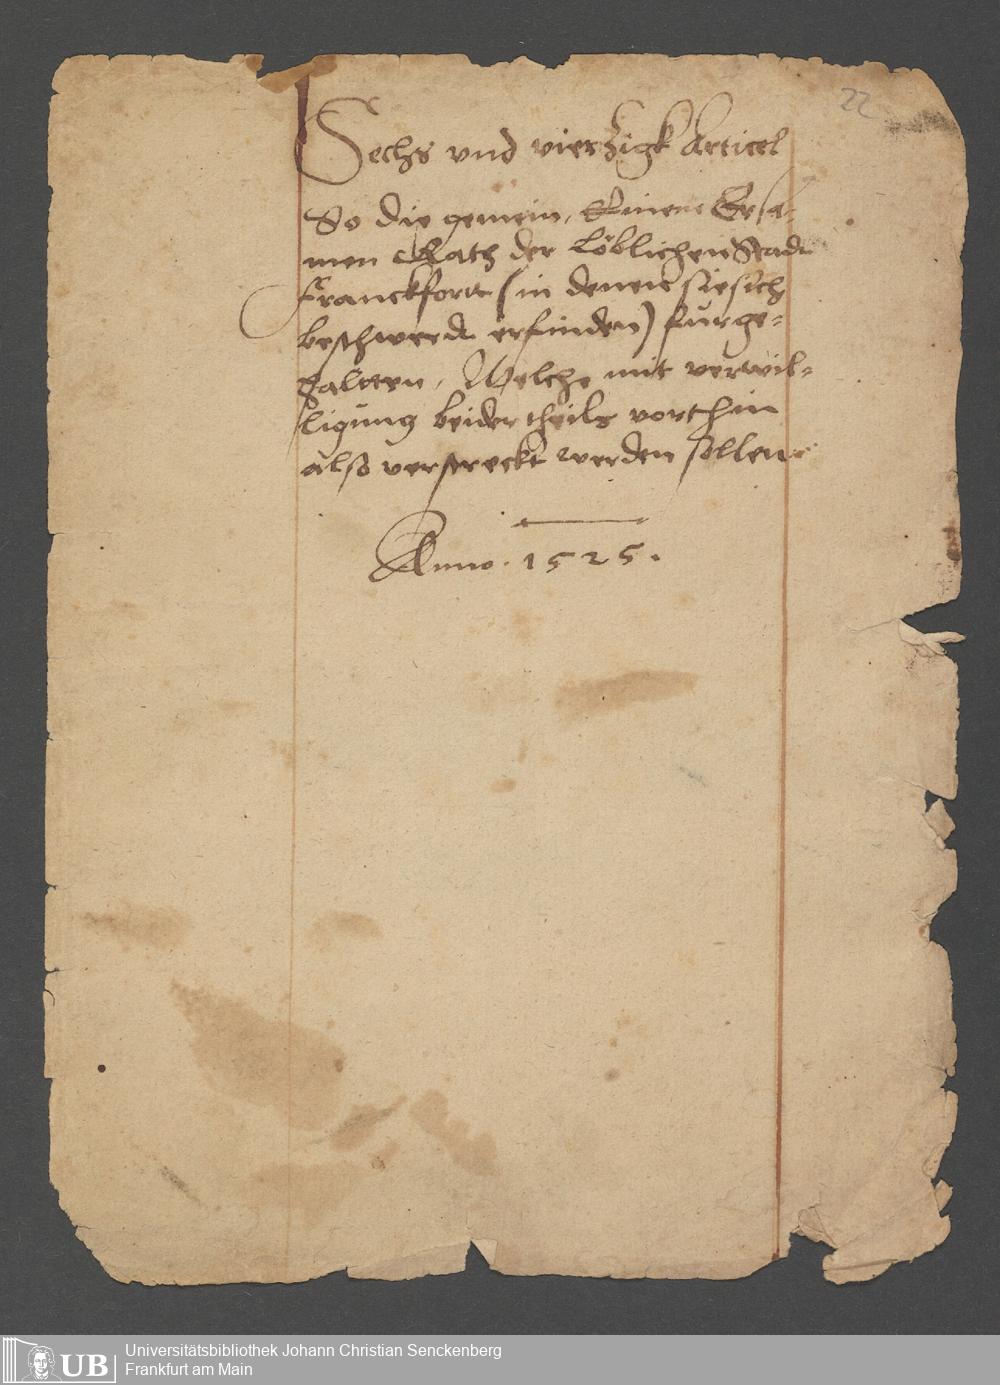 22
Sechs vnd vierzigk Articel
So die gemein, Einem Ersa-
men Rath der Löblichen Stadt
Franckfort (in denen sie sich
beschwerdt erfinden) fürge-
haltten, Welche mit verwil-
ligung beider theils vorthin
also verstreckt werden sollen
Anno. 1525.
UB
Universitätsbibliothek Johann Christian Senckenberg
Frankfurt am Main